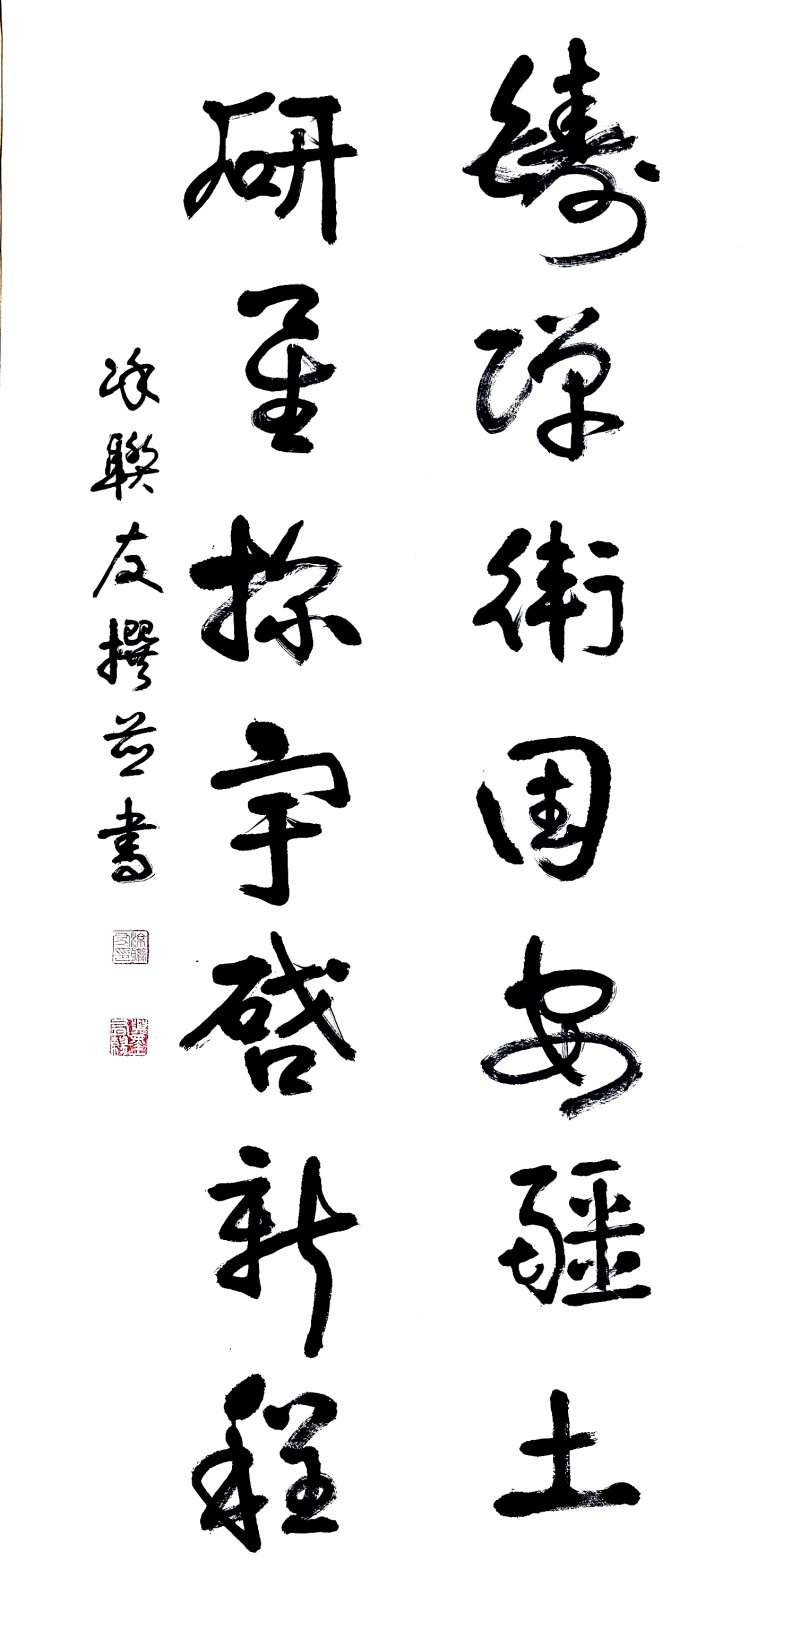 鑄彈衛國安疆土
研星探宇啓新程
涂聯友撰並書